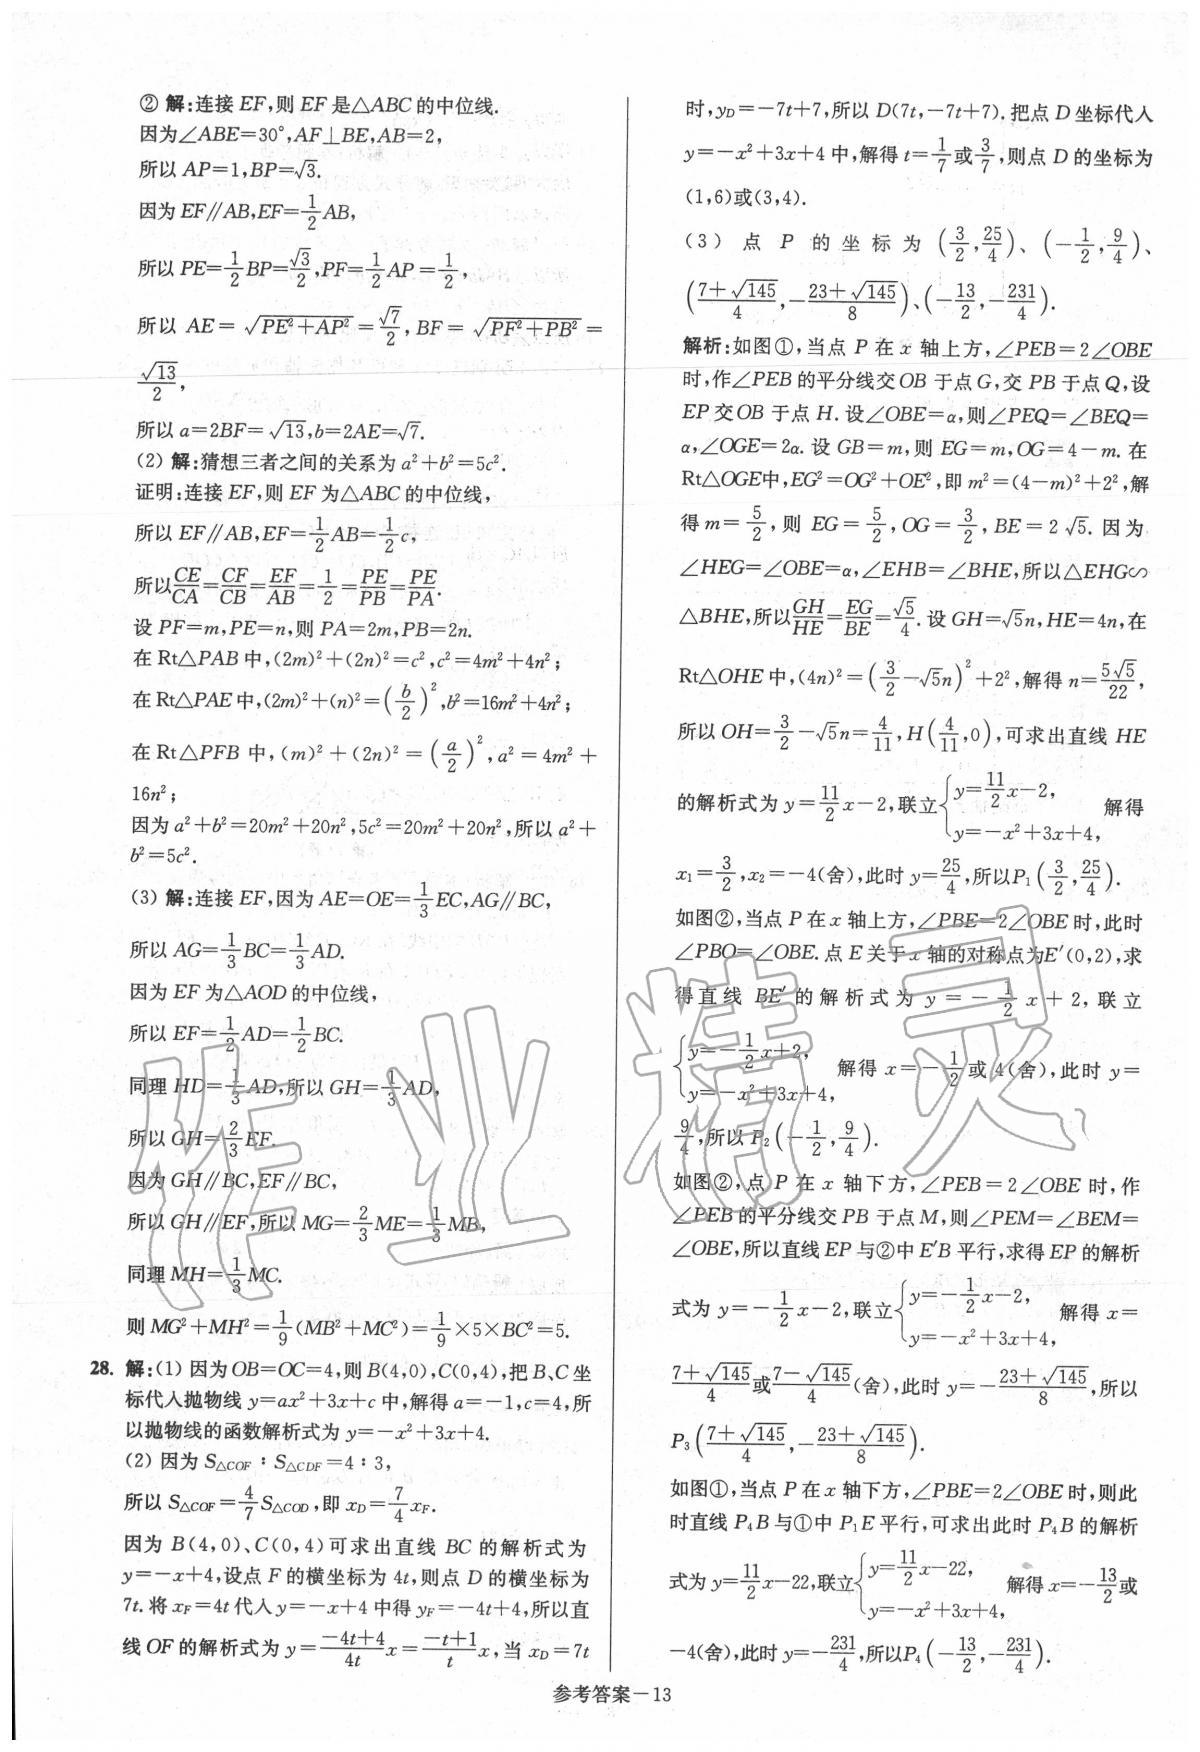 ② 解:连接 EF,则 EF 是△ABC 的中位线.
因为∠ABE=30°,AF⊥BE,AB=2,
所以 AP=1,BP=√3.
因为 EF∥AB,EF=1/2 AB,
所以 PE=1/2 BP=√3/2,PF=1/2 AP=1/2,
所以 AE=√(PE²+AP²)=√7/2,BF=√(PF²+PB²)=
√13/2,
所以 a=2BF=√13,b=2AE=√7.
(2) 解:猜想三者之间的关系为 a²+b²=5c².
证明:连接 EF,则 EF 为△ABC 的中位线,
所以 EF∥AB,EF=1/2 AB=1/2 c,
所以 CE/CA=CF/CB=EF/AB=1/2=PE/PB=PE/PA.
设 PF=m,PE=n,则 PA=2m,PB=2n.
在 Rt△PAB 中,(2m)²+(2n)²=c²,c²=4m²+4n²;
在 Rt△PAE 中,(2m)²+(n)²=(b/2)²,b²=16m²+4n²;
在 Rt△PFB 中,(m)²+(2n)²=(a/2)²,a²=4m²+
16n²;
因为 a²+b²=20m²+20n²,5c²=20m²+20n²,所以 a²+
b²=5c².
(3) 解:连接 EF,因为 AE=OE=1/3 EC,AG∥BC,
所以 AG=1/3 BC=1/3 AD.
因为 EF 为△AOD 的中位线,
所以 EF=1/2 AD=1/2 BC.
同理 HD=1/3 AD,所以 GH=1/3 AD,
所以 GH=2/3 EF.
因为 GH∥BC,EF∥BC,
所以 GH∥EF,所以 MG=2/3 ME=1/3 MB,
同理 MH=1/3 MC.
则 MG²+MH²=1/9(MB²+MC²)=1/9×5×BC²=5.
28. 解:(1) 因为 OB=OC=4,则 B(4,0),C(0,4),把 B、C 坐
标代入抛物线 y=ax²+3x+c 中,解得 a=-1,c=4,所
以抛物线的函数解析式为 y=-x²+3x+4.
(2) 因为 S△COF∶S△CDF=4∶3,
所以 S△COF=4/7 S△COD,即 xD=7/4 xF.
因为 B(4,0)、C(0,4)可求出直线 BC 的解析式为
y=-x+4,设点 F 的横坐标为 4t,则点 D 的横坐标为
7t.将 xF=4t 代入 y=-x+4 中得 yF=-4t+4,所以直
线 OF 的解析式为 y=(-4t+4)/4t x=(-t+1)/t x,当 xD=7t
时,yD=-7t+7,所以 D(7t,-7t+7).把点 D 坐标代入
y=-x²+3x+4 中,解得 t=1/7或3/7,则点 D 的坐标为
(1,6)或(3,4).
(3) 点 P 的坐标为(3/2,25/4)、(-1/2,9/4)、
((7+√145)/4,-(23+√145)/8)、(-13/2,-231/4).
解析:如图①,当点 P 在 x 轴上方,∠PEB=2∠OBE
时,作∠PEB 的平分线交 OB 于点 G,交 PB 于点 Q,设
EP 交 OB 于点 H.设∠OBE=α,则∠PEQ=∠BEQ=
α,∠OGE=2α.设 GB=m,则 EG=m,OG=4-m.在
Rt△OGE中,EG²=OG²+OE²,即 m²=(4-m)²+2²,解
得 m=5/2,则 EG=5/2,OG=3/2,BE=2√5.因为
∠HEG=∠OBE=α,∠EHB=∠BHE,所以△EHG∽
△BHE,所以GH/HE=EG/BE=√5/4.设 GH=√5n,HE=4n,在
Rt△OHE 中,(4n)²=(3/2-√5n)²+2²,解得 n=5√5/22,
所以 OH=3/2-√5n=4/11,H(4/11,0),可求出直线 HE
的解析式为 y=11/2 x-2,联立{y=11/2 x-2, y=-x²+3x+4, 解得
x₁=3/2,x₂=-4(舍),此时 y=25/4,所以P₁(3/2,25/4).
如图②,当点 P 在 x 轴上方,∠PBE=2∠OBE 时,此时
∠PBO=∠OBE.点 E 关于 x 轴的对称点为E′(0,2),求
得直线 BE′的解析式为 y=-1/2 x+2,联立
{y=-1/2 x+2, y=-x²+3x+4, 解得 x=-1/2或 4(舍),此时 y=
9/4,所以 P₂(-1/2,9/4).
如图②,点 P 在 x 轴下方,∠PEB=2∠OBE 时,作
∠PEB 的平分线交 PB 于点 M,则∠PEM=∠BEM=
∠OBE,所以直线 EP 与②中 E′B 平行,求得 EP 的解析
式为 y=-1/2 x-2,联立{y=-1/2 x-2, y=-x²+3x+4, 解得 x=
(7+√145)/4或(7-√145)/4(舍),此时 y=-(23+√145)/8,所以
P₃((7+√145)/4,-(23+√145)/8).
如图①,当点 P 在 x 轴下方,∠PBE=2∠OBE 时,则此
时直线 P₄B 与①中 P₁E 平行,可求出此时 P₄B 的解析
式为 y=11/2 x-22,联立{y=11/2 x-22, y=-x²+3x+4, 解得 x=-13/2或
-4(舍),此时 y=-231/4,所以P₄(-13/2,-231/4).
参考答案-13
作业精灵